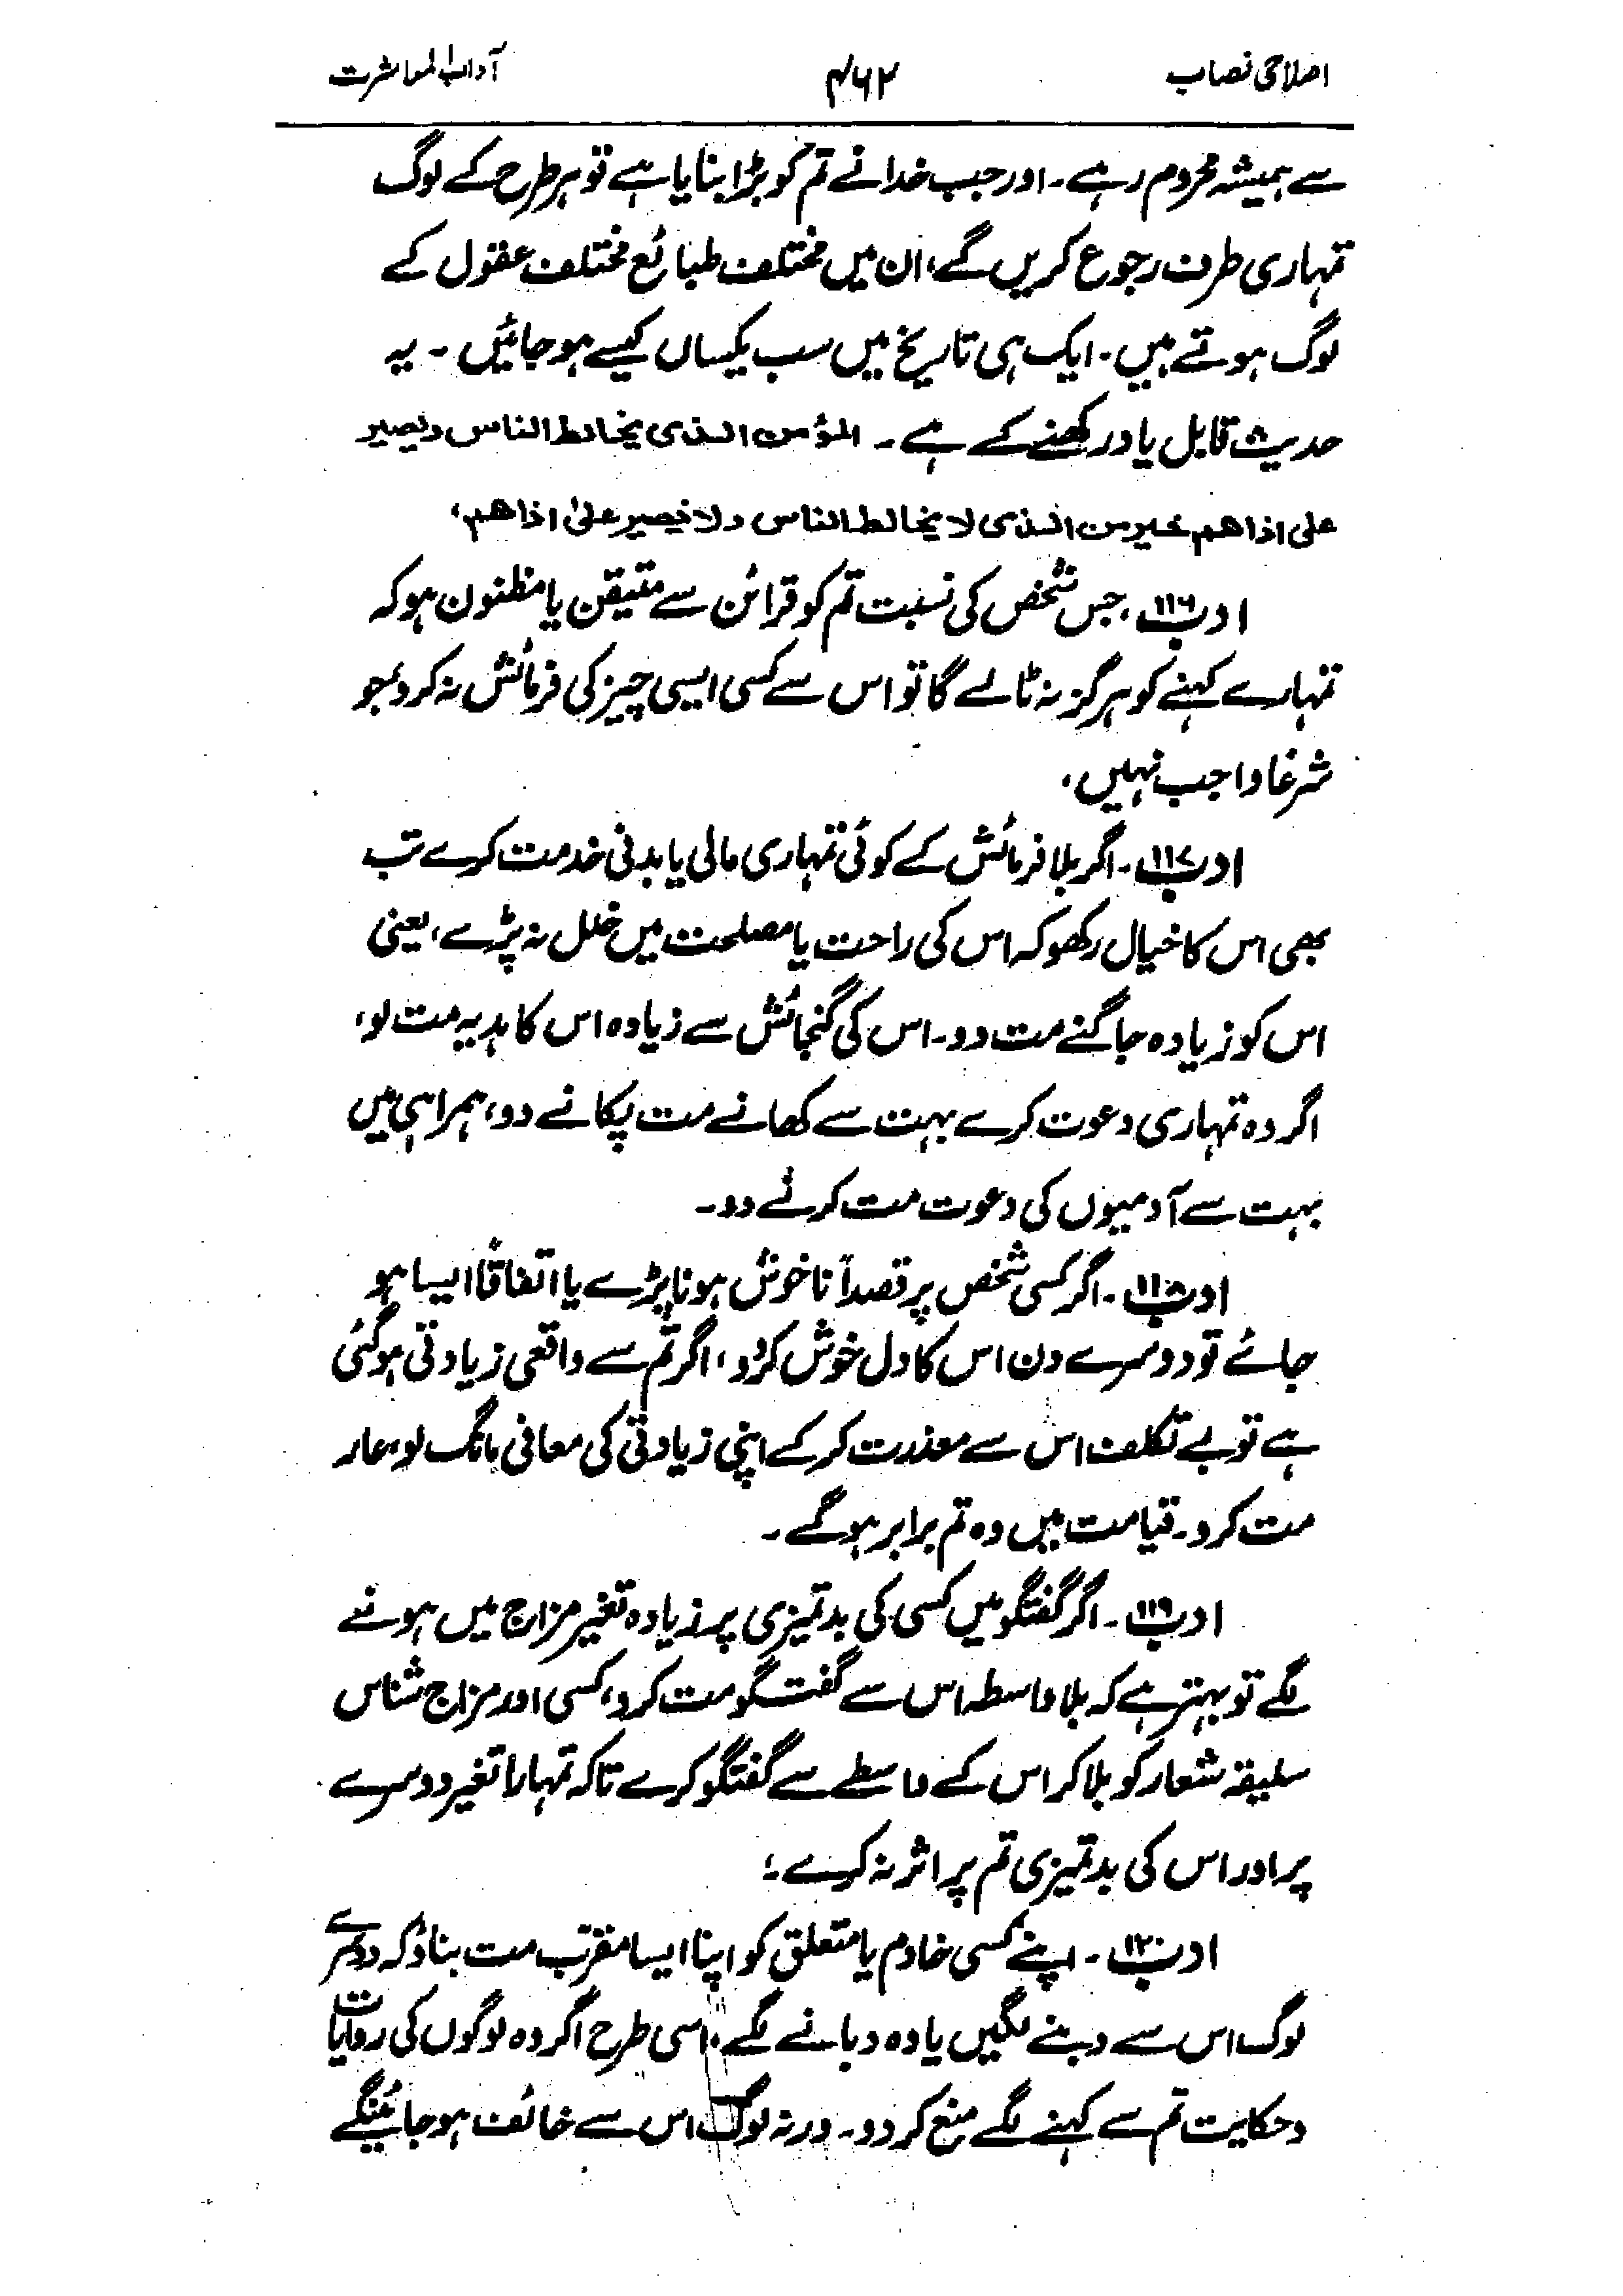 اصلاحی نصاب ۴۶۲ آداب المعاشرت
سے ہمیشہ محروم رہے۔ اور جب خدا نے تم کو بڑا بنایا ہے تو ہر طرح کے لوگ
تمہاری طرف رجوع کریں گے، ان میں مختلف طبائع مختلف عقول کے
لوگ ہوتے ہیں۔ ایک ہی تاریخ میں سب یکساں کیسے ہو جائیں۔ یہ
حدیث قابل یاد رکھنے کے ہے۔ المؤمن الذی یخالط الناس ویصبر
علی اذاھم خیر من الذی لا یخالط الناس ولا یصبر علیٰ اذاھم،
ادب ۱۱۶، جس شخص کی نسبت تم کو قرائن سے متیقن یا مظنون ہو کہ
تمہارے کہنے کو ہرگز نہ ٹالے گا تو اس سے کسی ایسی چیز کی فرمائش نہ کرو، جو
شرعًا واجب نہیں۔
ادب ۱۱۷۔ اگر بلا فرمائش کے کوئی تمہاری مالی یا بدنی خدمت کرے تب
بھی اس کا خیال رکھو کہ اس کی راحت یا مصلحت میں خلل نہ پڑے، یعنی
اس کو زیادہ جاگنے مت دو۔ اس کی گنجائش سے زیادہ اس کا ہدیہ مت لو،
اگر وہ تمہاری دعوت کرے بہت سے کھانے مت پکانے دو، ہمراہی میں
بہت سے آدمیوں کی دعوت مت کرنے دو۔
ادب ۱۱۸۔ اگر کسی شخص پر قصداً ناخوش ہونا پڑے یا اتفاقًا ایسا ہو
جائے تو دوسرے دن اس کا دل خوش کر دو، اگر تم سے واقعی زیادتی ہو گئی
ہے تو بے تکلف اس سے معذرت کر کے اپنی زیادتی کی معافی مانگ لو، عار
مت کرو۔ قیامت میں وہ تم برابر ہو گے۔
ادب ۱۱۹۔ اگر گفتگو میں کسی کی بدتمیزی پر زیادہ تغیر مزاج میں ہونے
لگے تو بہتر ہے کہ بلا واسطہ اس سے گفتگو مت کرو، کسی اور مزاج شناس
سلیقہ شعار کو بلا کر اس کے واسطے سے گفتگو کرے تاکہ تمہارا تغیر دوسرے
پر اور اس کی بدتمیزی تم پر اثر نہ کرے،
ادب ۱۲۰۔ اپنے کسی خادم یا متعلق کو اپنا ایسا مقرّب مت بناؤ کہ دوسرے
لوگ اس سے دبنے لگیں یا وہ دبانے لگے، اسی طرح اگر وہ لوگوں کی روایات
و حکایت تم سے کہنے لگے منع کر دو۔ ورنہ لوگ اس سے خائف ہو جائینگے